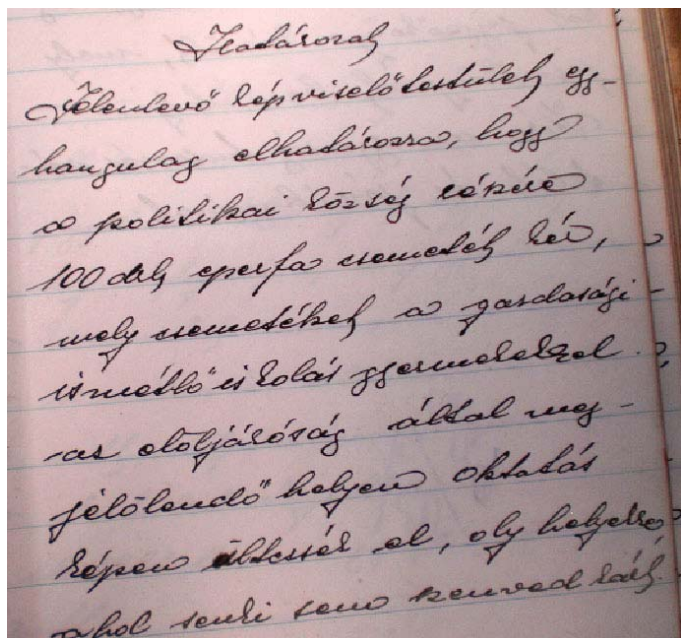 Határozat
Jelenlevő képviselőtestület egy-
hangulag elhatározza, hogy
a politikai község részére
100 drb eperfa csemetét kér,
mely csemetéket a gazdasági
ismétlő iskolás gyermekekkel
az elöljáróság által meg-
jelölendő helyen oktatás
képen ültessék el, oly helyekre
ahol senki sem szenved kárt.